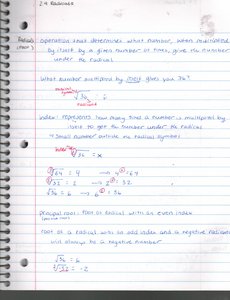 2.4 Radicals
Radicals
(Root)
operation that determines what number, when multiplied
by itself by a given number of times, give the number
under the radical
What number multiplied by itself gives you 36?
radical
symbol
√36 = 6
radicand
Index: represents how many times a number is multiplied by
itself to get the number under the radical
small number outside the radical symbol
index
√36 = x
³√64 = 4 → 4³ = 64
⁵√32 = 2 → 2⁵ = 32
√36 = 6 → 6² = 36
principal root: root of radical with an even index
root of a radical with an odd index and a negative radicand
will always be a negative number
√36 = 6
⁵√-32 = -2